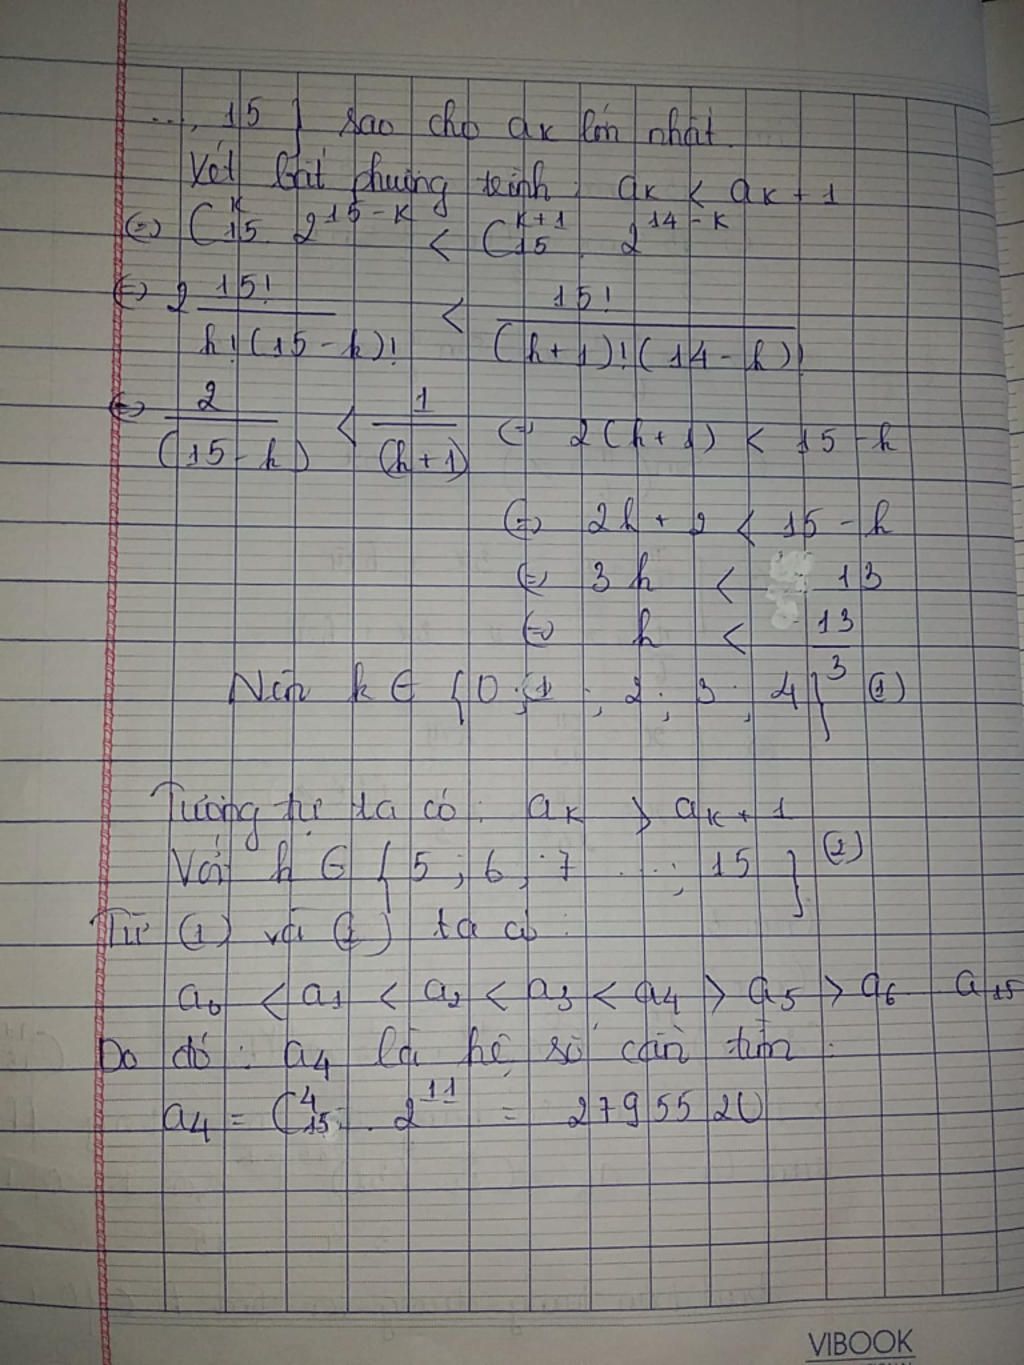 ..., 15 } sao cho aₖ lớn nhất
Xét bất phương trình : aₖ < aₖ + 1
⇔ C₁₅ᵏ 2¹⁵⁻ᵏ < C₁₅ᵏ⁺¹ . 2¹⁴⁻ᵏ
⇔ 2 15! / k!(15-k)! < 15! / (k+1)!(14-k)!
⇔ 2 / (15-k) < 1 / (k+1) ⇔ 2(k+1) < 15-k
⇔ 2k + 2 < 15 - k
⇔ 3k < 13
⇔ k < 13/3
Nên k ∈ {0 ; 1 ; 2 ; 3 ; 4} (1)
Tương tự ta có : aₖ > aₖ + 1
Với k ∈ { 5 ; 6 ; 7 ... ; 15 } (2)
Từ (1) và (2) ta có :
a₀ < a₁ < a₂ < a₃ < a₄ > a₅ > a₆ a₁₅
Do đó : a₄ là hệ số cần tìm :
a₄ = C₁₅⁴ . 2¹¹ = 2795520
VIBOOK